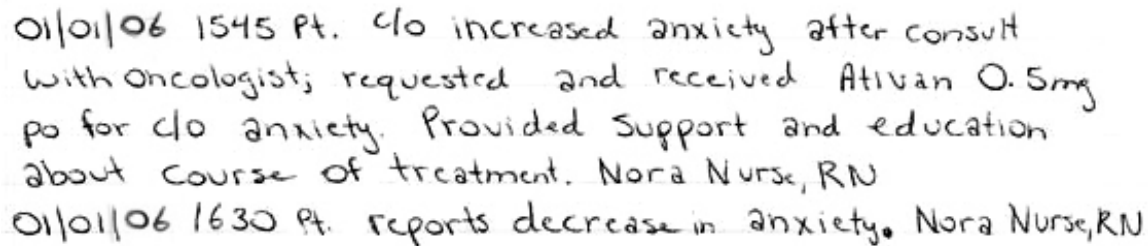 01/01/06 1545 Pt. c/o increased anxiety after consult
with oncologist; requested and received Ativan 0.5mg
po for c/o anxiety. Provided support and education
about course of treatment. Nora Nurse, RN
01/01/06 1630 Pt. reports decrease in anxiety. Nora Nurse, RN